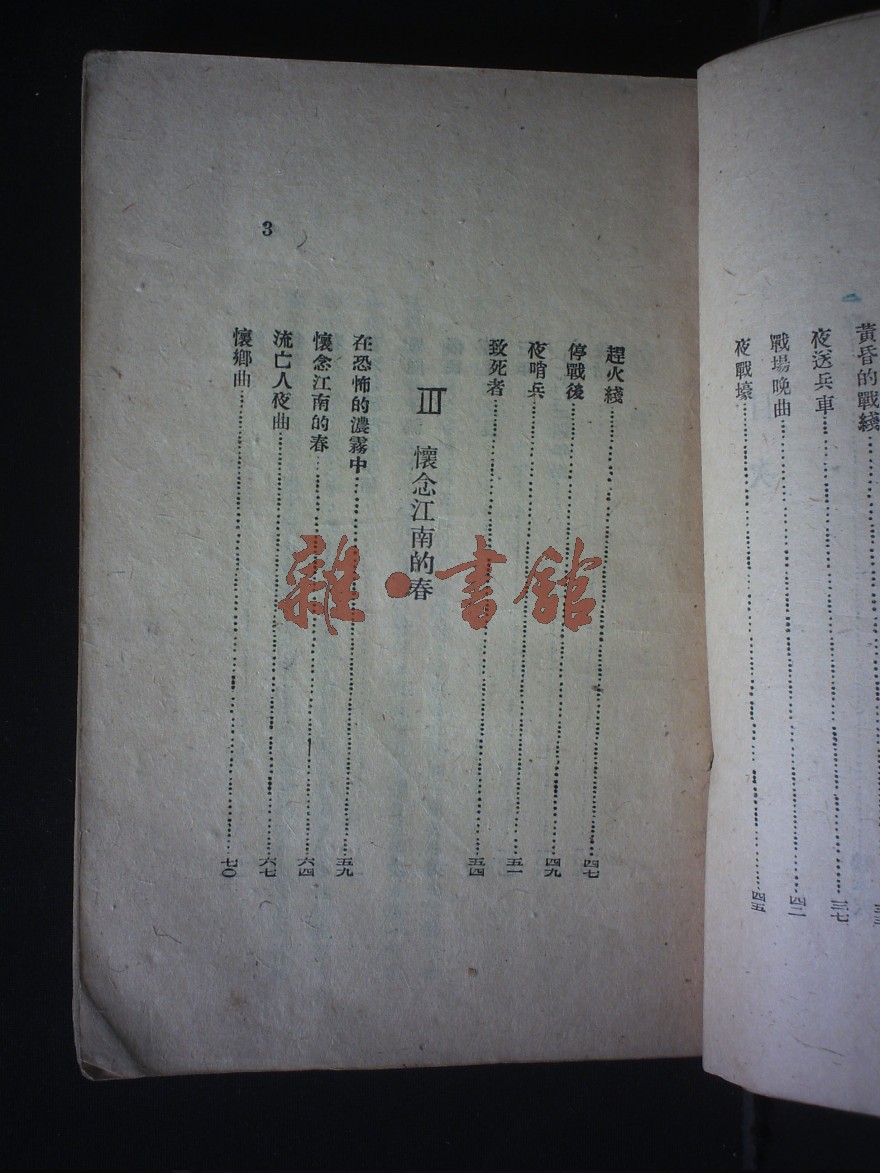 黃昏的戰綫
夜送兵車……三七
戰場晚曲……四二
夜戰壕……四五
3
趕火綫……四七
停戰後……四九
夜哨兵……五一
致死者……五四
III 懷念江南的春
在恐怖的濃霧中……五九
懷念江南的春……六四
流亡人夜曲……六七
懷鄉曲……七〇
雜·書館